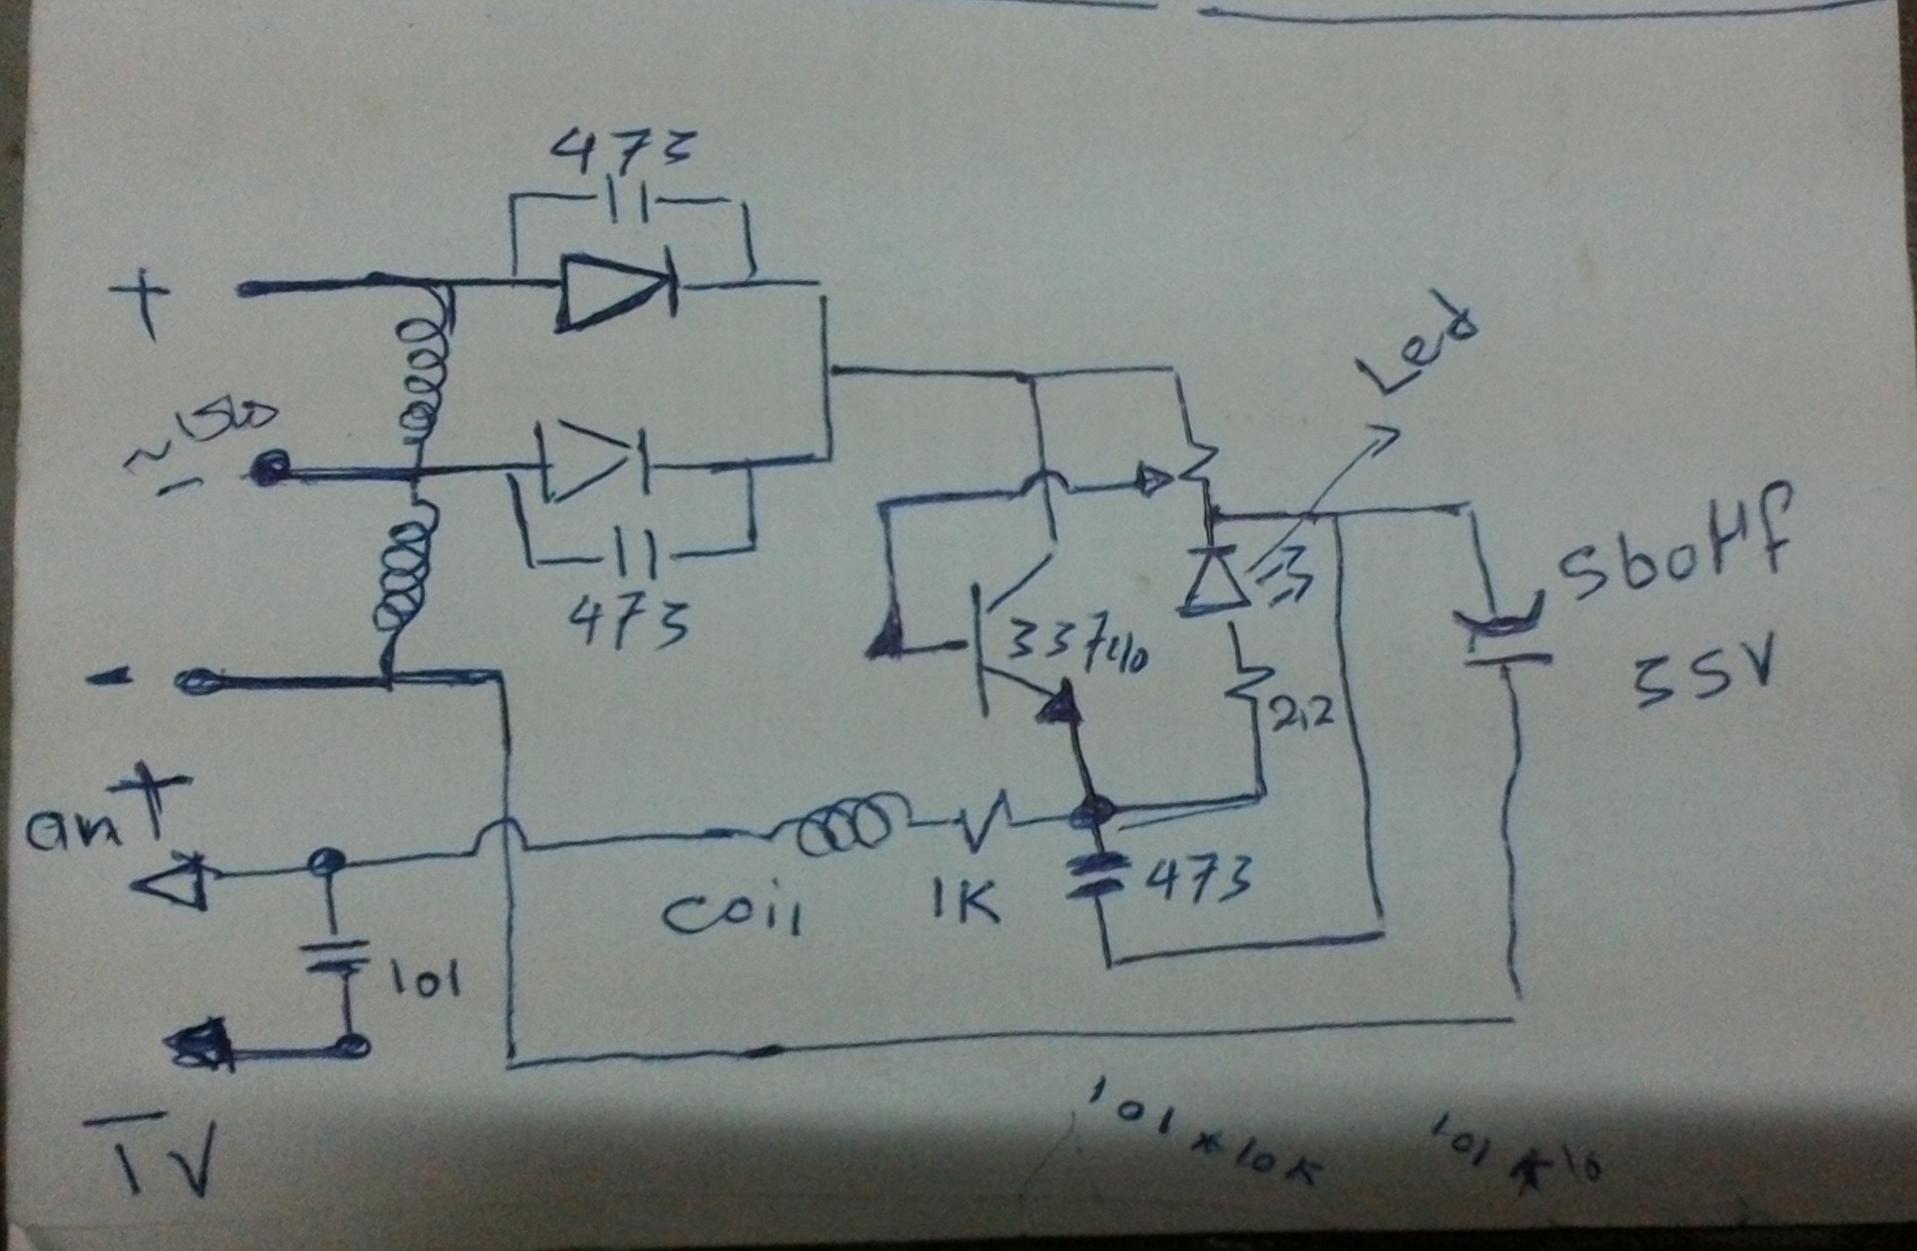 473
+
Led
~
-
473
560Mf
35V
337/40
-
2,2
ant
coil
1K
473
101
TV
101 * 10K
101 * 10